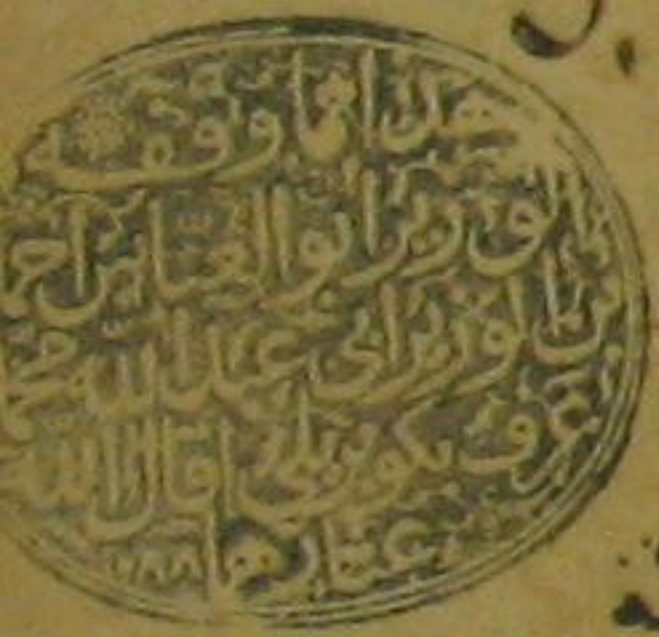 هذا مما وقفه
الوزير ابو العباس احمد
بن الوزير ابي عبد الله محمد
عرف بكوبريلي اقال الله
عثارها ١٠٨٨